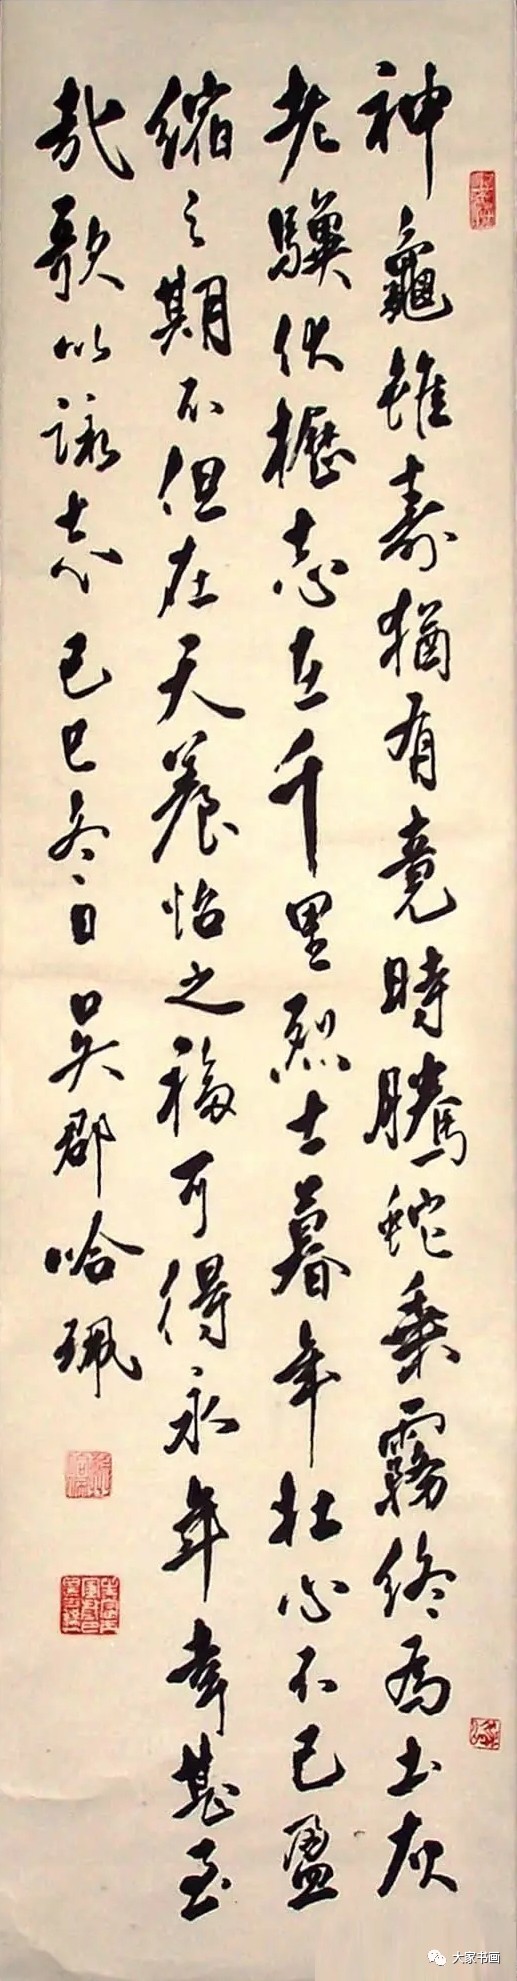 神龜雖壽猶有竟時騰蛇乘霧終為土灰
老驥伏櫪志在千里烈士暮年壯心不已盈
縮之期不但在天養怡之福可得永年幸甚至
哉歌以詠志己巳冬日吳郡哈珮
大家书画